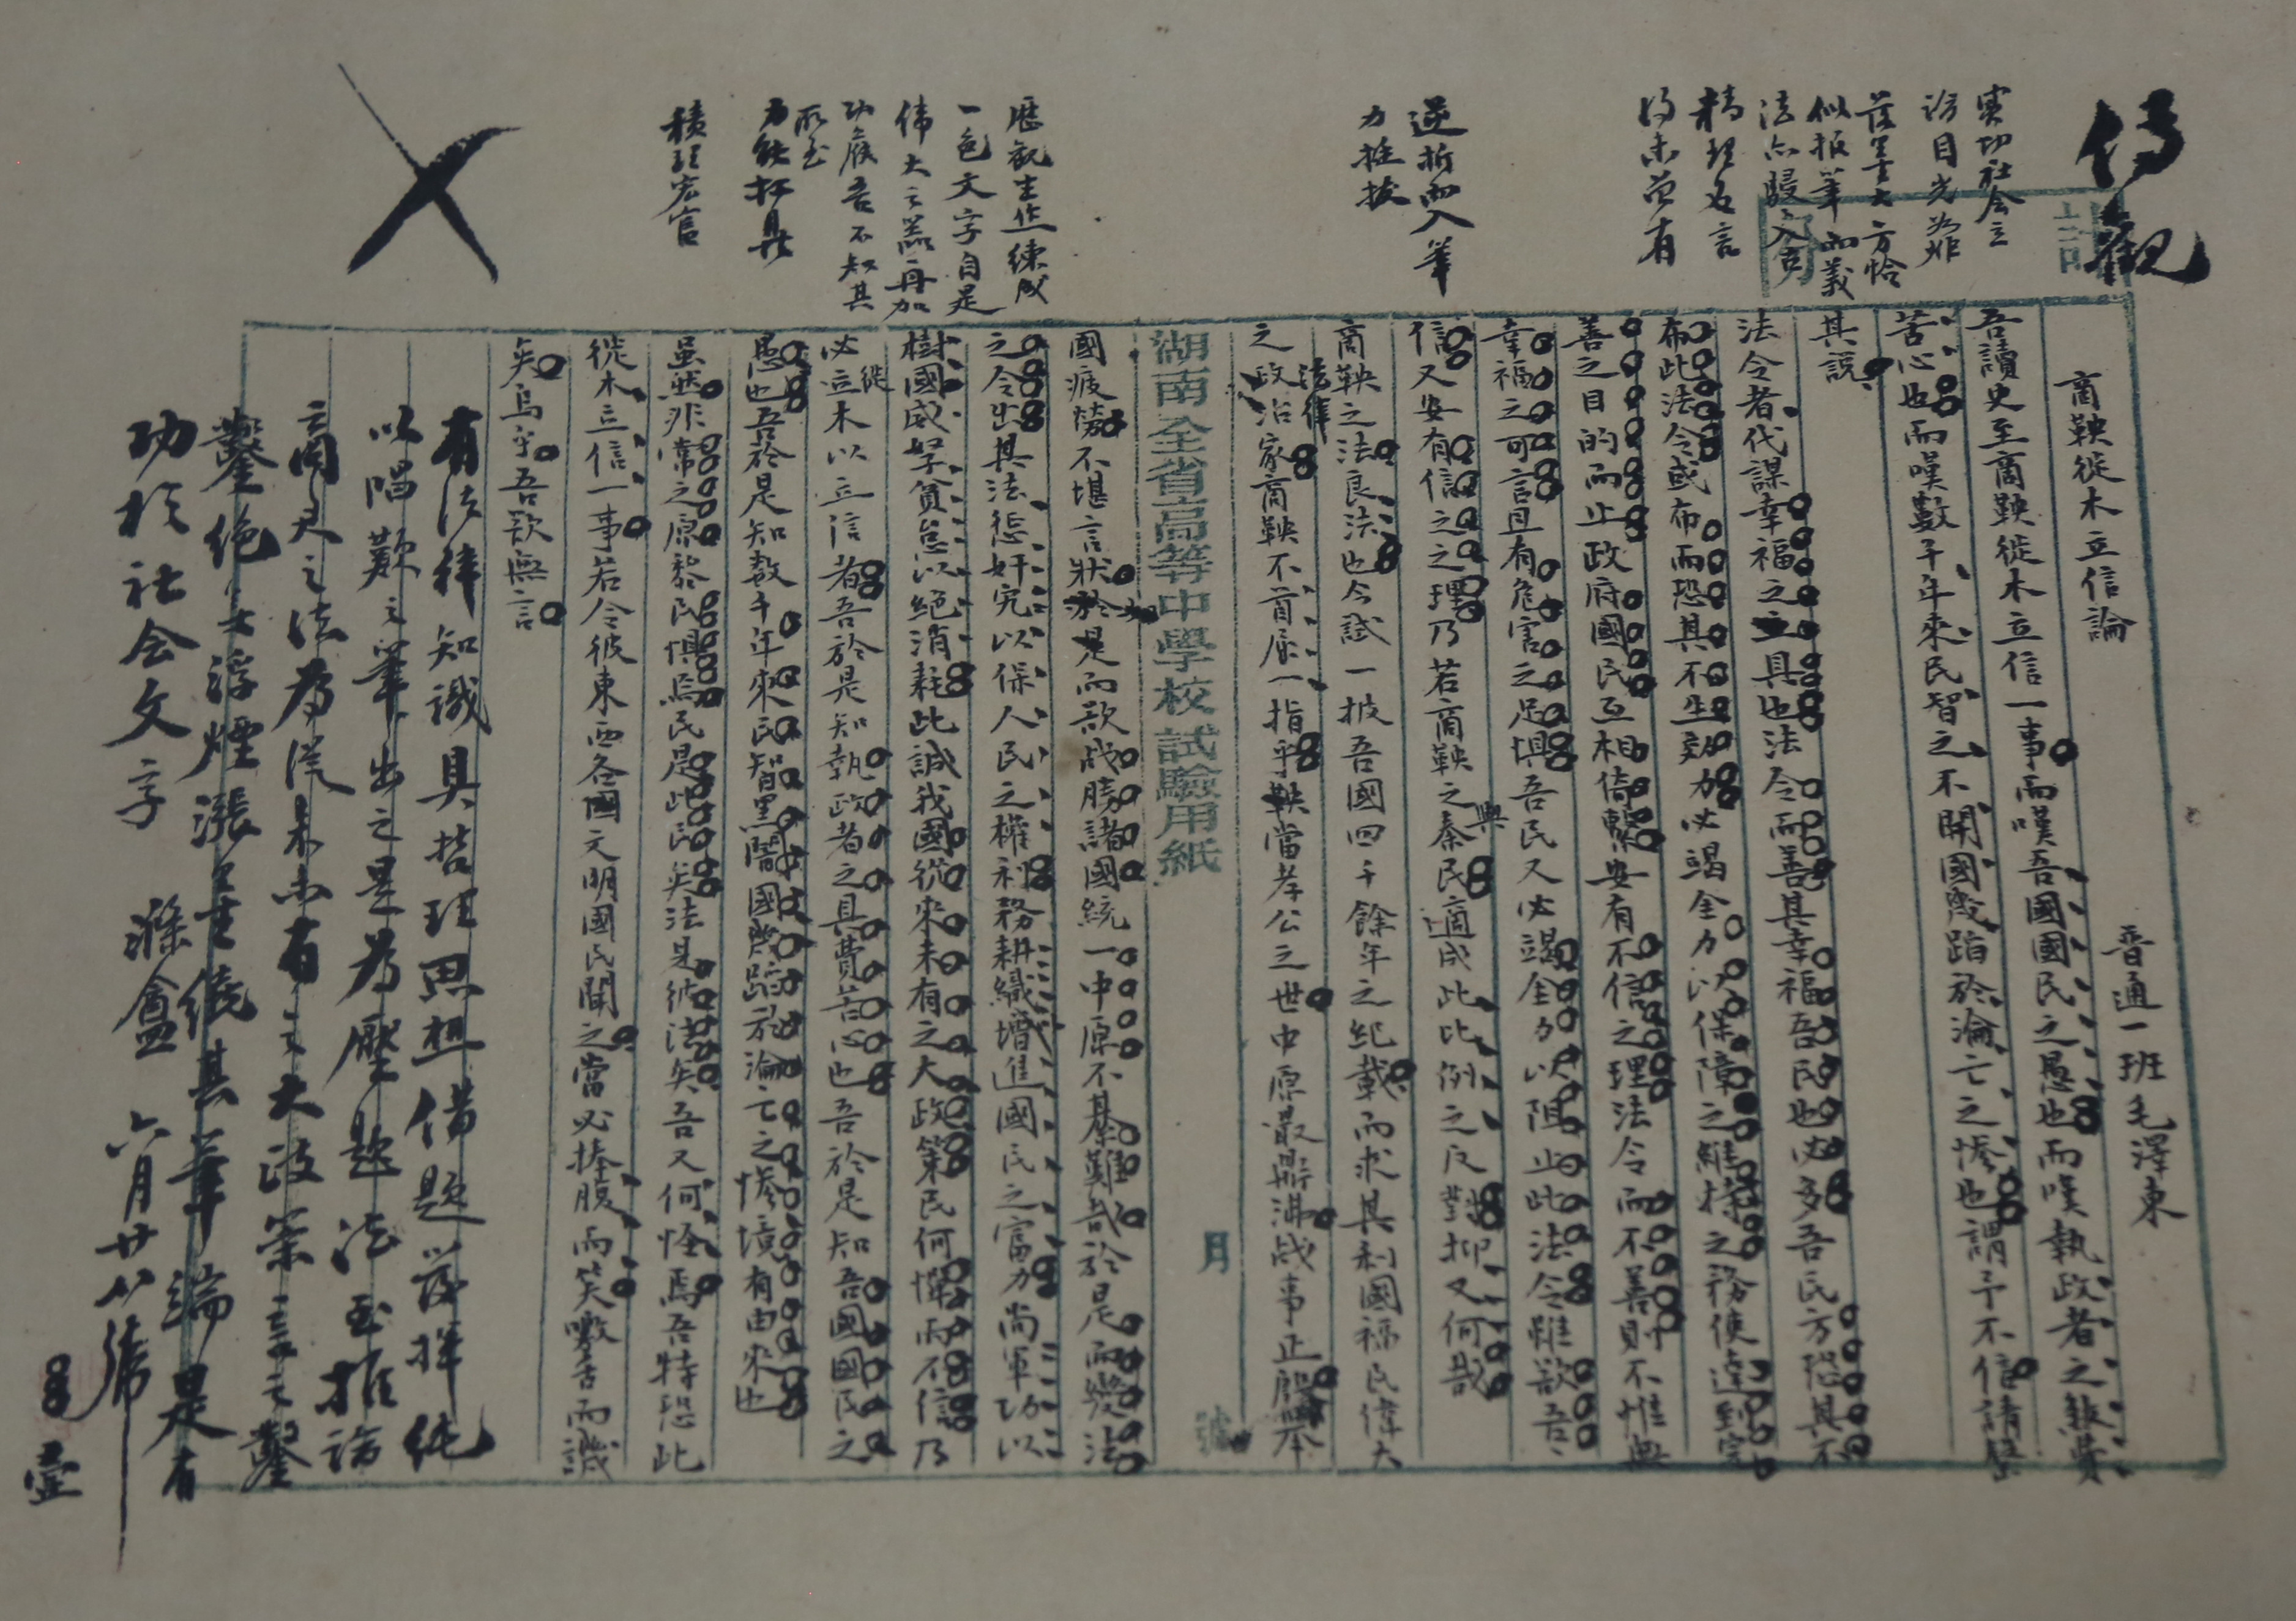 傳觀
實切社會立
論目光如炬
落墨大方恰
似報筆而義
法亦駸入古
精理名言
得未曾有
逆折而入筆
力挺拔
歷觀生作練成
一色文字自是
偉大之器再加
功候吾不知其
所至
力能扛鼎
積理宏富
商鞅徙木立信論
普通一班毛澤東
吾讀史至商鞅徙木立信一事而嘆吾國國民之愚也而嘆執政者之煞費
苦心也而嘆數千年來民智之不開國幾蹈於淪亡之慘也謂予不信請罄
其說
法令者代謀幸福之具也法令而善其幸福吾民也必多吾民方恐其不
布此法令或布而恐其不生効力必竭全力以保障之維持之務使達到完
善之目的而止政府國民互相倚繫安有不信之理法令而不善則不惟無
幸福之可言且有危害之足懼吾民又必竭全力以阻止此法令雖欲吾
信又安有信之之理乃若商鞅之與秦民適成此比例之反對抑又何哉
商鞅之法良法也今試一披吾國四千餘年之紀載而求其利國福民偉大
之政治家商鞅不首屈一指乎鞅當孝公之世中原最鼎沸戰事正殷舉
湖南全省高等中學校試驗用紙
月
號
國疲勞不堪言狀於是而欲戰勝諸國統一中原不綦難哉於是而變法
之令出其法懲奸宄以保人民之權利務耕織以增進國民之富力尚軍功以
樹國威孥貧怠以絕消耗此誠我國從來未有之大政策民何憚而不信乃
必徙木以立信者吾於是知執政者之具費苦心也吾於是知吾國國民之
愚也吾於是知數千年來民智黑闇國幾蹈於淪亡之慘境有由來也
雖然非常之原黎民懼焉民是此民矣法是彼法矣吾又何怪焉吾特恐此
徙木立信一事若令彼東西各國文明國民聞之當必捧腹而笑噭舌而譏
矣烏乎吾欲無言
有法律知識具哲理思想借題發揮純
以唱歎之筆出之是為壓題法至推論
商君之法為從來未有之大政策言之鑿
鑿絕無浮煙漲墨繞其筆端是有
功於社會文字
滌盦
六月廿八號
壹